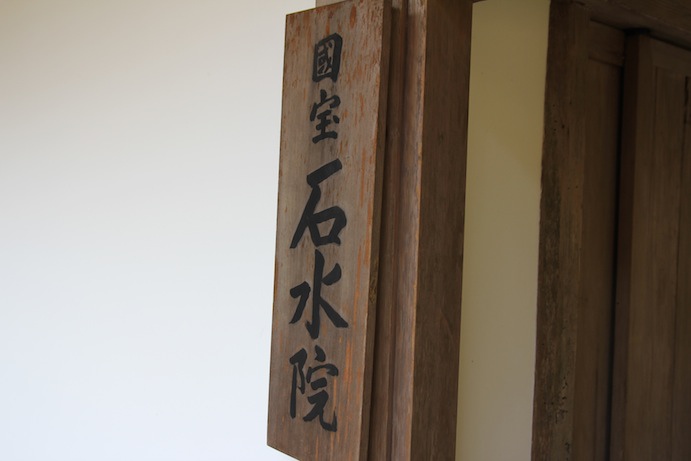 國宝 石水院